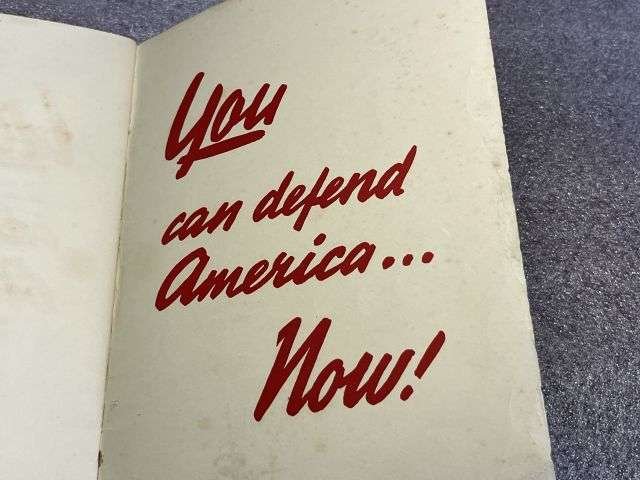 You
can defend
America...
Now!